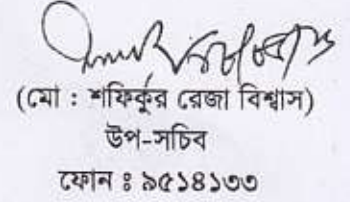 (মো : শফিকুর রেজা বিশ্বাস)
উপ-সচিব
ফোন ঃ ৯৫১৪১৩৩